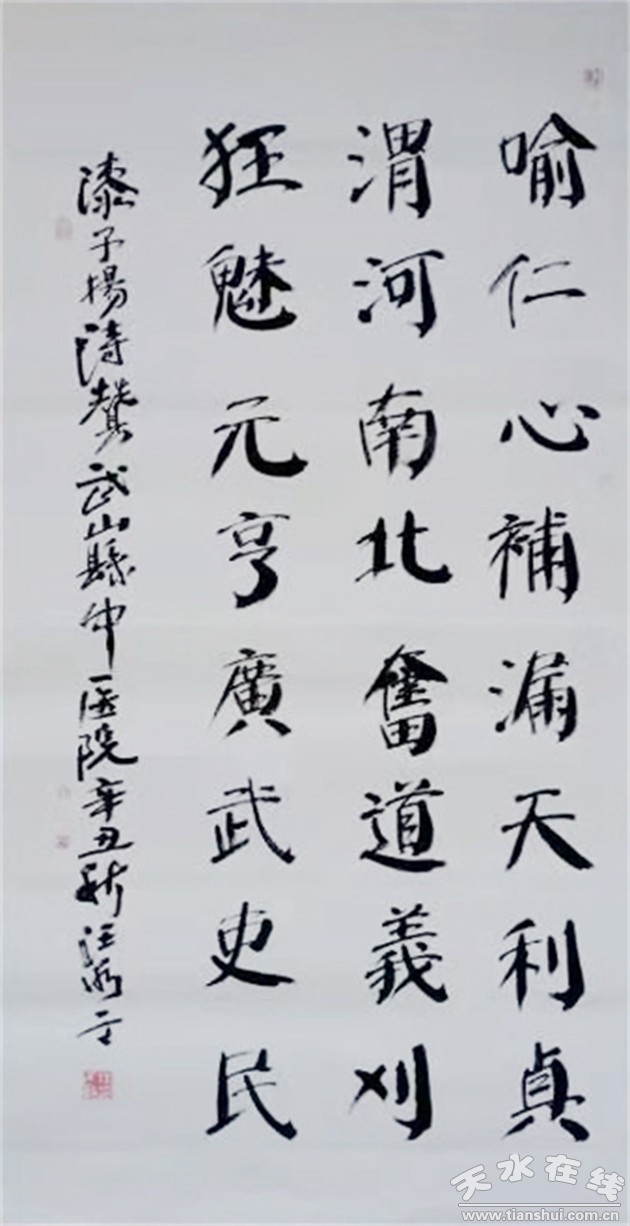 喻仁心補漏天利貞
渭河南北奮道義刈
狂魅元亨廣武吏民
漆子揚濤贊武山縣中医院辛丑秋汪
天水在线
www.tianshui.com.cn